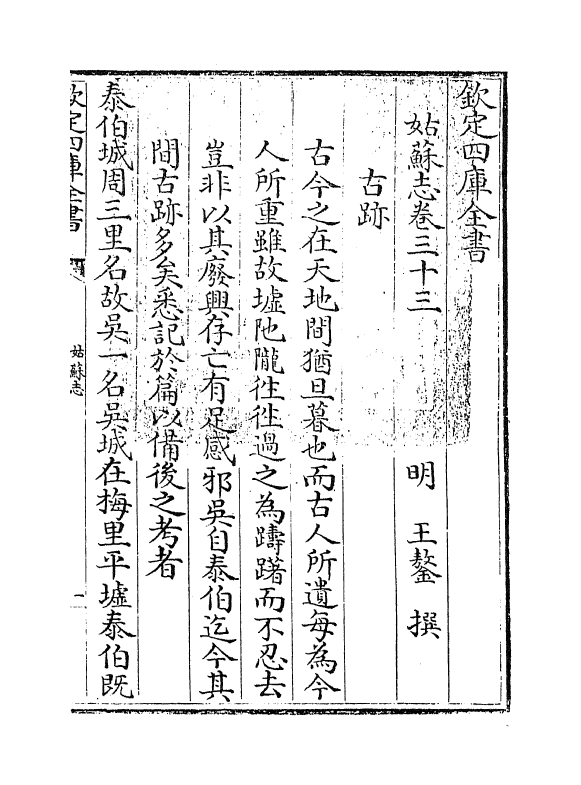 欽定四庫全書
姑蘇志卷三十三　明　王鏊　撰
古跡
古今之在天地間猶旦暮也而古人所遺每為今
人所重雖故墟阤隴徃徃過之為躊躇而不忍去
豈非以其廢興存亡有足感邪吳自泰伯迄今其
間古跡多矣悉記於篇以備後之考者
泰伯城周三里名故吳一名吳城在梅里平墟泰伯既
欽定四庫全書
姑蘇志
一